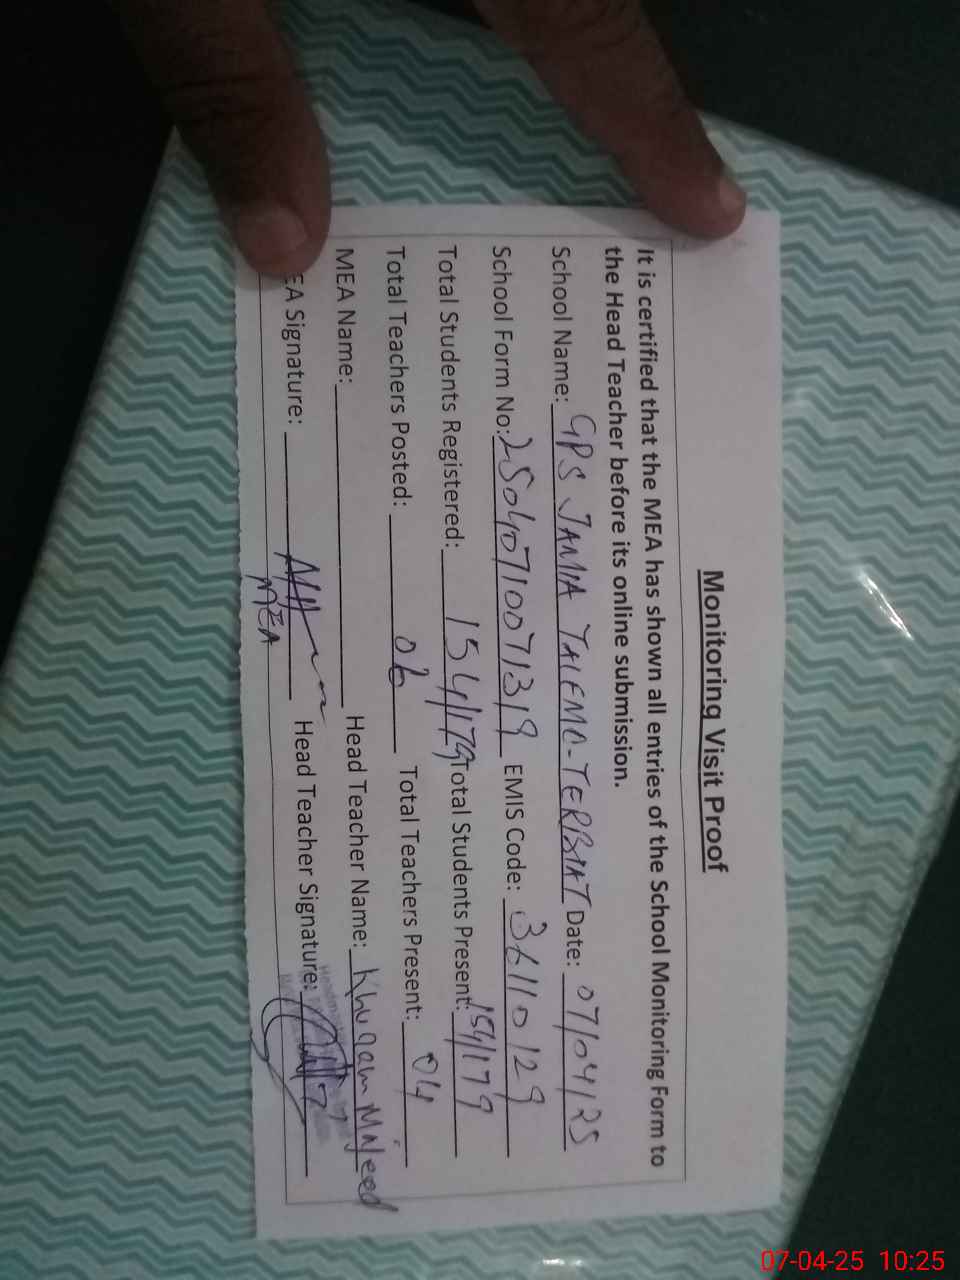 Monitoring Visit Proof
It is certified that the MEA has shown all entries of the School Monitoring Form to
the Head Teacher before its online submission.
School Name: GPS JAMIA TALEMO-TERBIAT Date: 07/04/25
School Form No: 2504071007319 EMIS Code: 36110129
Total Students Registered: 154/179 Total Students Present: 154/179
Total Teachers Posted: 06 Total Teachers Present: 04
MEA Name: Head Teacher Name: Khuram Majeed
EA Signature: Head Teacher Signature:
MEA
07-04-25 10:25